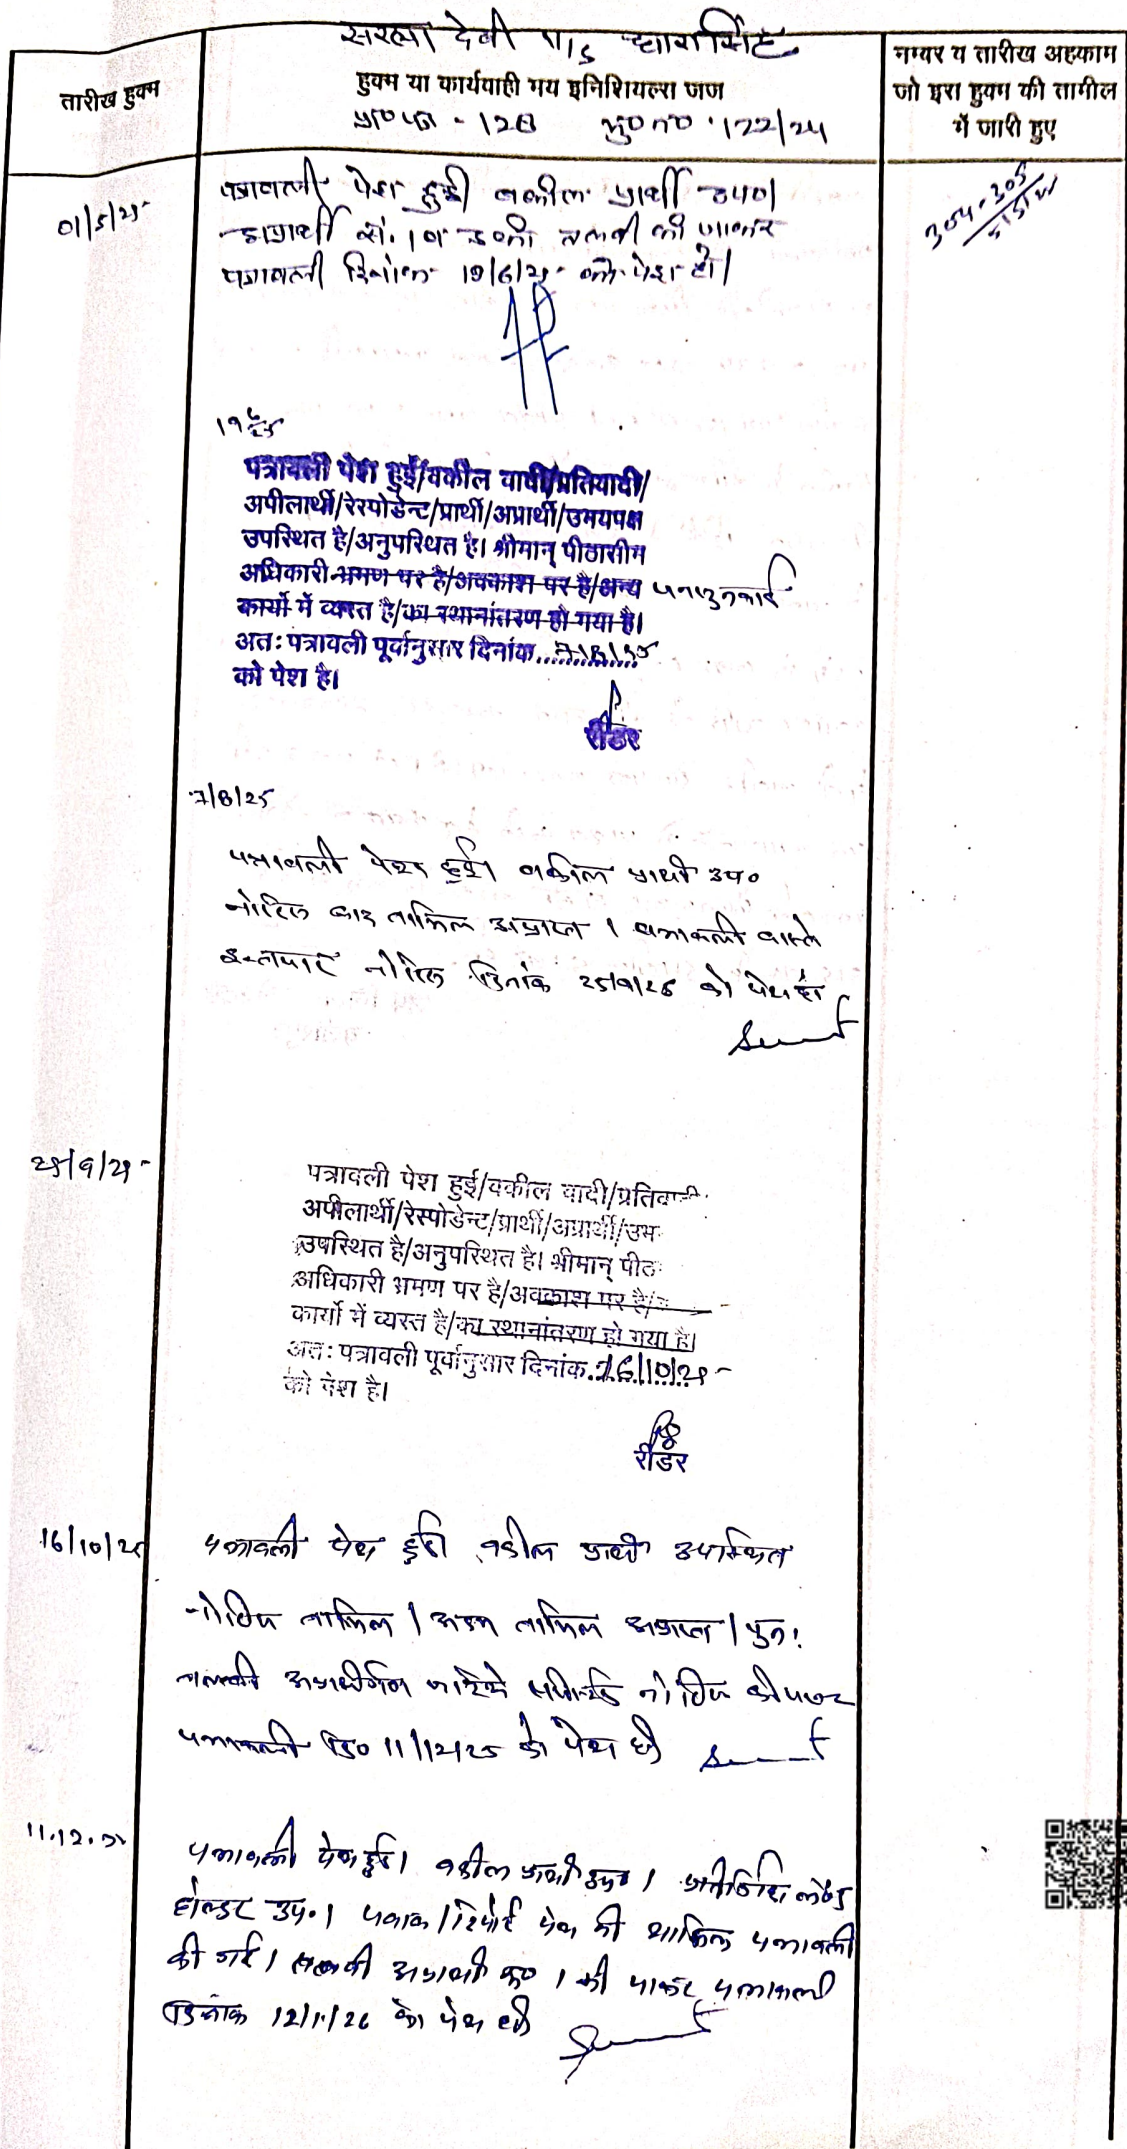 सरला देवी v/s धारासिंह
तारीख हुक्म
हुक्म या कार्यवाही मय इनिशियल्स जज
प्रा० पत्र - 128 मु० न० 122/24
नम्बर व तारीख अहकाम
जो इस हुक्म की तामील
में जारी हुए
01/5/25
पत्रावली पेश हुई वकील प्रार्थी उप०
अप्रार्थी सं. 1 की तलबी की जाकर
पत्रावली दिनांक 19/6/25 को पेश हो।
304-305
19/6/25
पत्रावली पेश हुई/वकील वादी/प्रतिवादी/
अपीलार्थी/रेस्पोडेन्ट/प्रार्थी/अप्रार्थी/उभयपक्ष
उपस्थित है/अनुपस्थित है। श्रीमान् पीठासीन
अधिकारी भ्रमण पर है/अवकाश पर है/अन्य
कार्यो में व्यस्त है/का स्थानांतरण हो गया है।
अतः पत्रावली पूर्वानुसार दिनांक...7/8/25
को पेश है।
रीडर
7/8/25
पत्रावली पेश हुई। वकील प्रार्थी उप०
नोटिस बाद तामिल अप्राप्त । पत्रावली वास्ते
इन्तजार नोटिस दिनांक 25/9/25 को पेश हो
25/9/25
पत्रावली पेश हुई/वकील वादी/प्रतिवादी
अपीलार्थी/रेस्पोडेन्ट/प्रार्थी/अप्रार्थी/उभ
उपस्थित है/अनुपस्थित है। श्रीमान् पीठ
अधिकारी भ्रमण पर है/अवकाश पर है/
कार्यो में व्यस्त है/का स्थानांतरण हो गया है।
अतः पत्रावली पूर्वानुसार दिनांक.16/10/25
को पेश है।
रीडर
16/10/25
पत्रावली पेश हुई वकील प्रार्थी उपस्थित
नोटिस तामिल / अदम तामिल अप्राप्त । पुनः
तलबी अप्रार्थीगण जरिये रजिस्टर्ड नोटिस की जाकर
पत्रावली दि० 11/12/25 को पेश हो
11.12.25
पत्रावली पेश हुई। वकील प्रार्थी उप० । प्रतिनिधि लैण्ड
होल्डर उप.। जवाब/रिपोर्ट पेश की शामिल पत्रावली
की गई। तलबी अप्रार्थी क्र० 1 की जाकर पत्रावली
दिनांक 12/1/26 को पेश हो